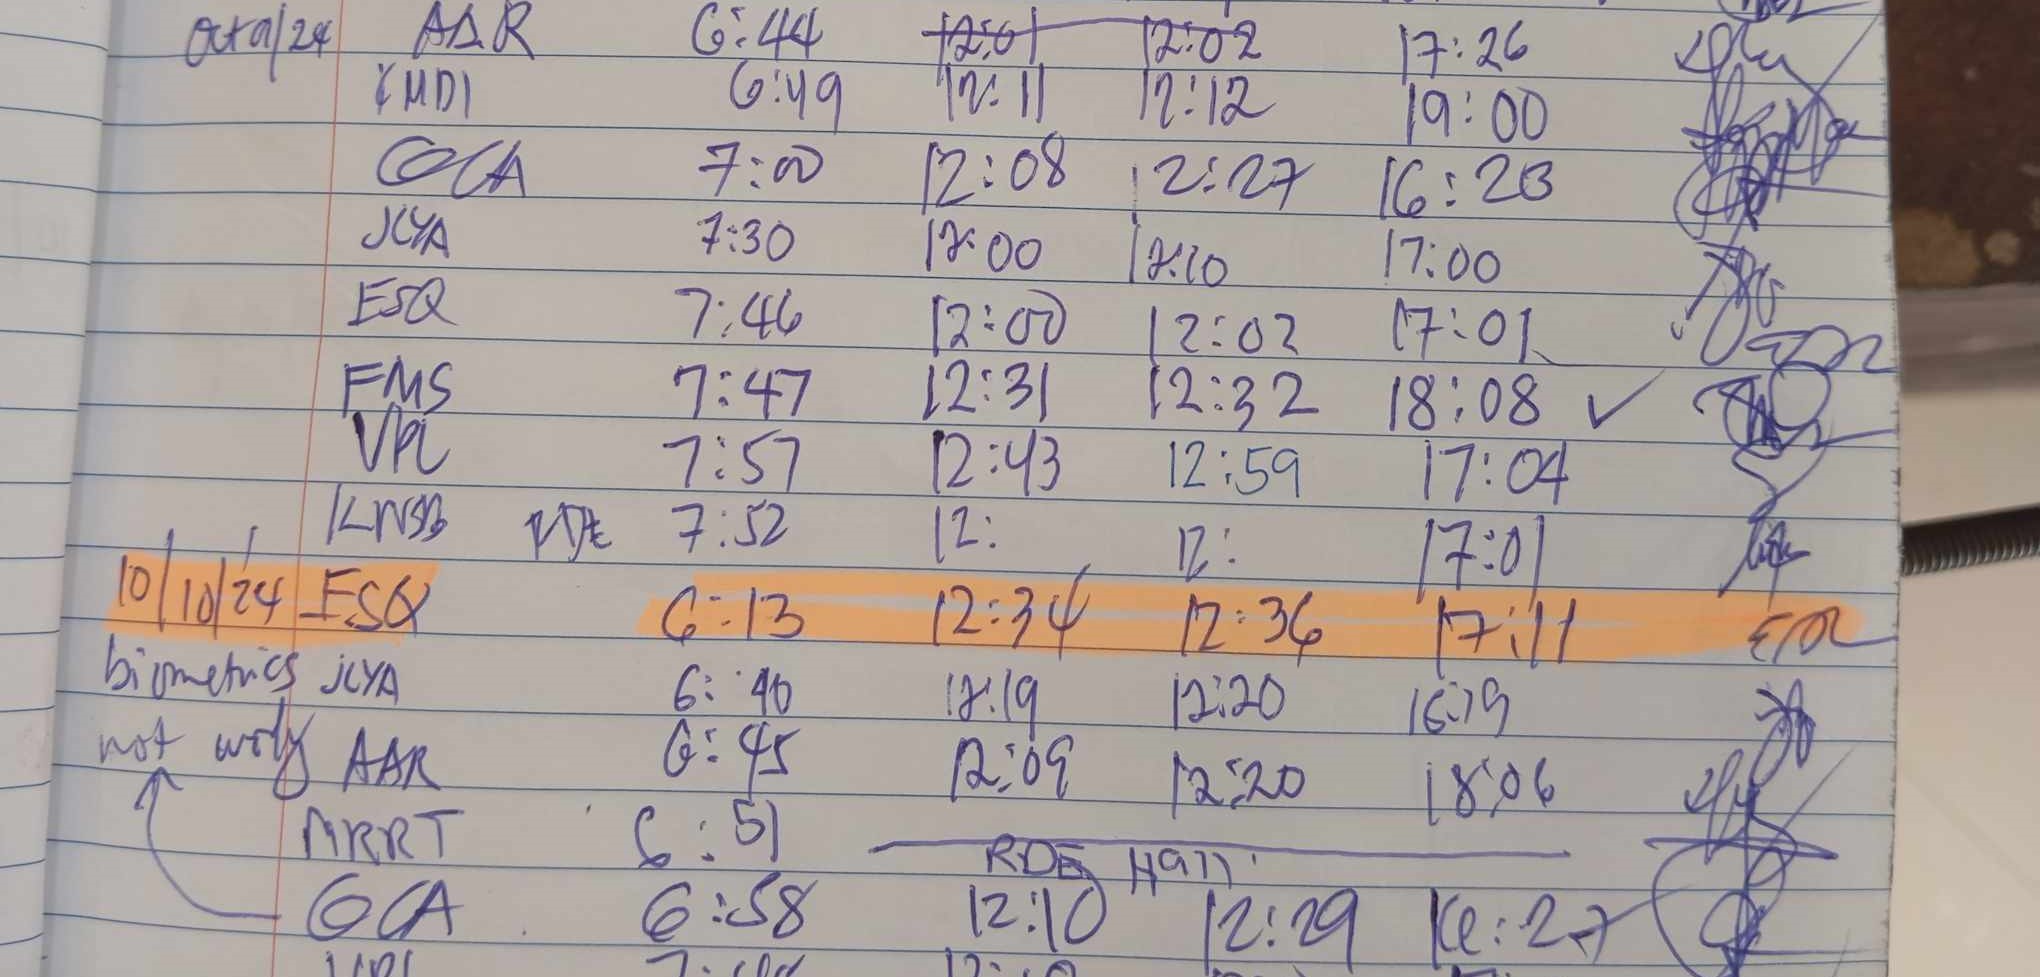 Oct 9/24 AAR 6:44 12:01 12:02 17:26
KMDI 6:49 12:11 12:12 19:00
GCA 7:00 12:08 12:27 16:23
JCYA 7:30 12:00 12:10 17:00
ESQ 7:46 12:00 12:02 17:01
FMS 7:47 12:31 12:32 18:08 ✓
VPL 7:57 12:43 12:59 17:04
KNSB 7:52 12: 12: 17:01
10/10/24 ESQ 6:13 12:34 12:36 17:11 ESQ
biometrics JCYA 6:40 12:19 12:20 16:19
not AAR 6:45 12:09 12:20 18:06
MRRT 6:51 RDE Hall
GCA 6:58 12:10 12:29 16:27